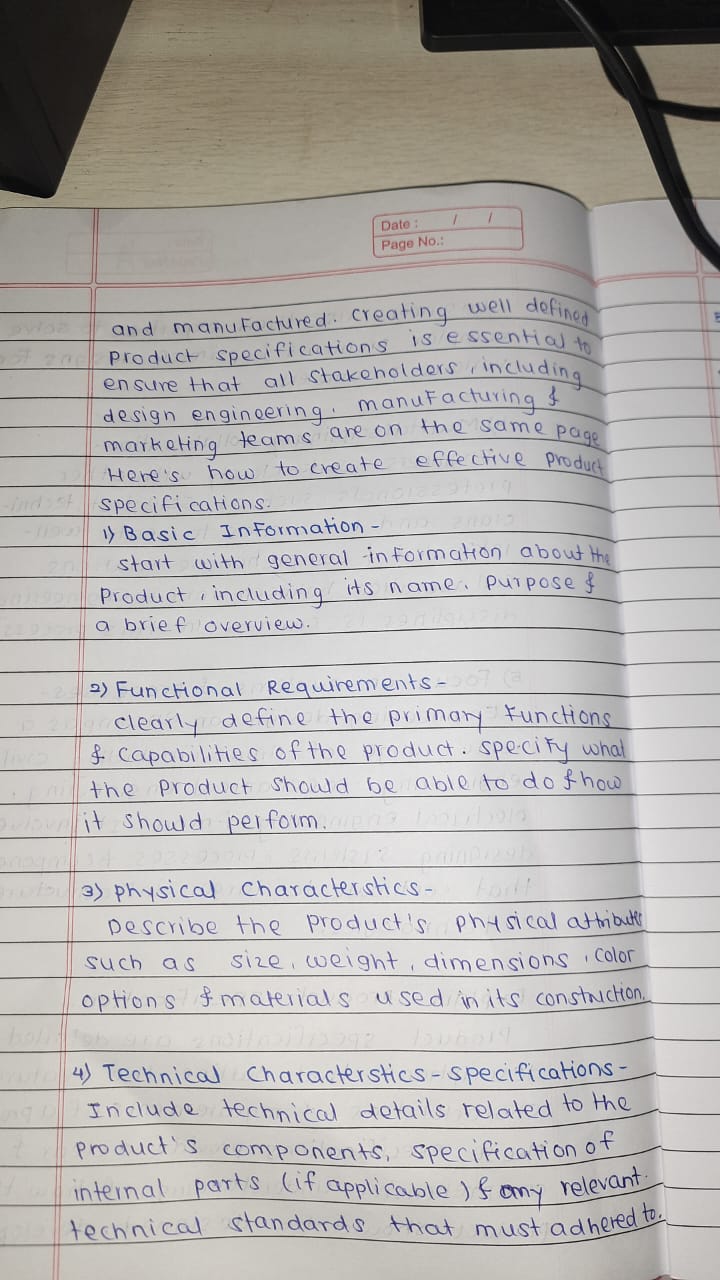 Date : / /
Page No.:
and manufactured. creating well defined
product specifications is essential to
ensure that all stakeholders, including
design engineering, manufacturing &
marketing teams are on the same page
Here's how to create effective product
specifications.
1) Basic Information -
start with general information about the
Product, including its name, purpose &
a brief overview.
2) Functional Requirements -
clearly define the primary functions
& capabilities of the product. specify what
the product should be able to do & how
it should perform.
3) physical characterstics -
Describe the product's physical attributes
such as size, weight, dimensions, color
options & materials used in its construction.
4) Technical characterstics - specifications -
Include technical details related to the
product's components, specification of
internal parts (if applicable) & any relevant
technical standards that must adhered to.